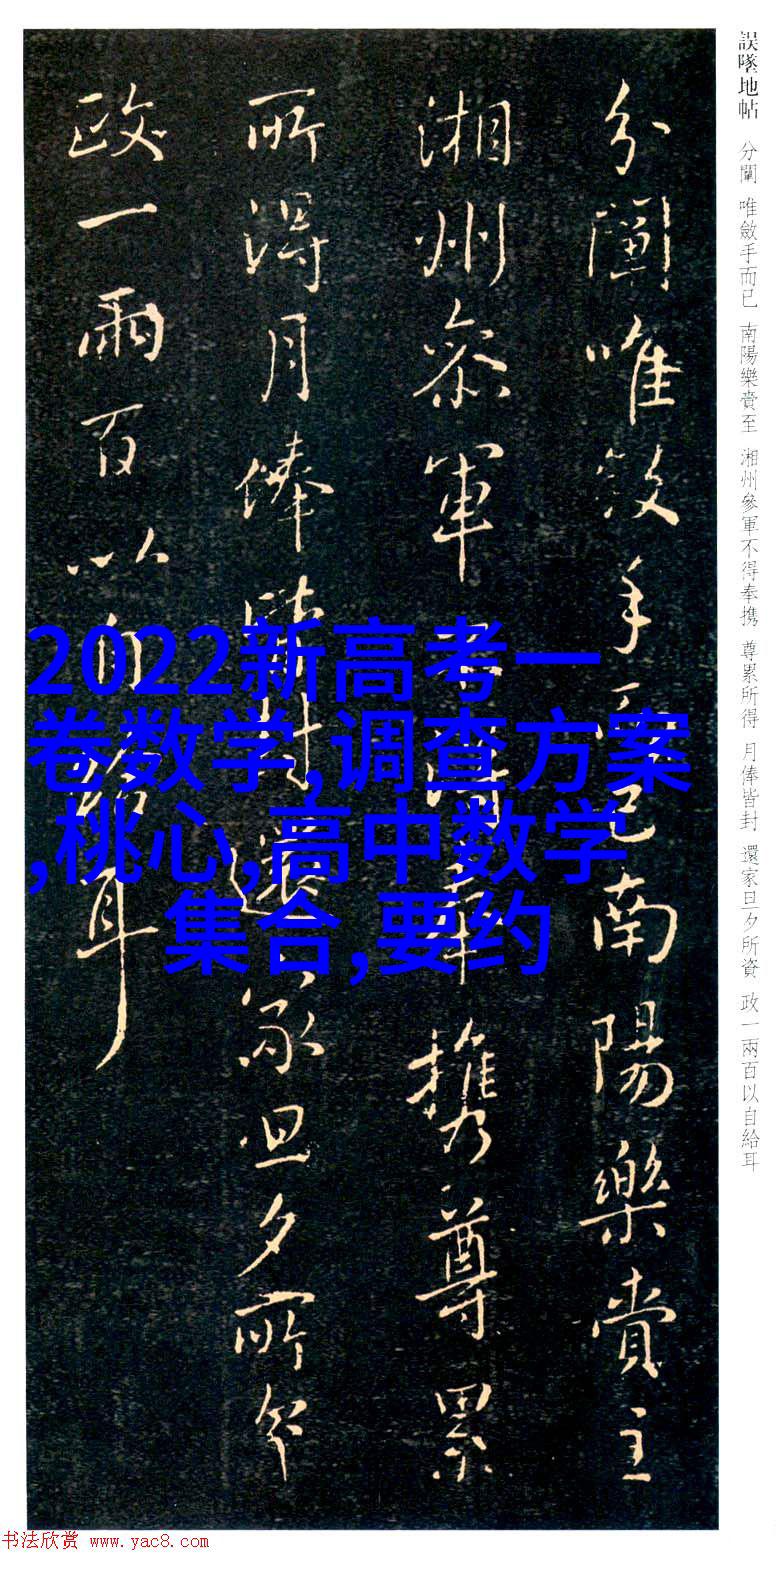 誤墜地帖 分闈 唯斂手而已 南陽樂賁至 湘州參軍不得奉携 尊累所得 月俸皆封 還家旦夕所資 政一兩百以自給耳
分闈唯斂手而已南陽樂賁至
湘州參軍不得奉携尊累
所得月俸皆封還家旦夕所資
政一兩百以自給耳
2022新高考一
卷数学,调查方案
,桃心,高中数学
集合,要约
书法欣赏 www.yac8.com